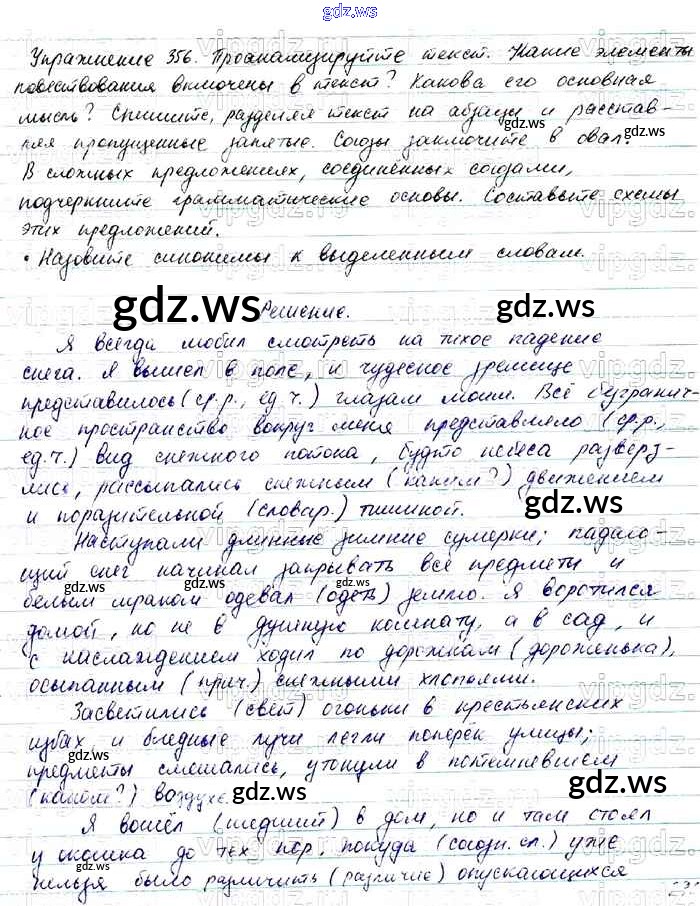 gdz.ws
Упражнение 356. Проанализируйте текст. Какие элементы
повествования включены в текст? Какова его основная
мысль? Спишите, разделяя текст на абзацы и расстав-
ляя пропущенные запятые. Союзы заключите в овал.
gdz.ws
В сложных предложениях, соединённых союзами,
подчеркните грамматические основы. Составьте схемы
этих предложений.
• Назовите синонимы к выделенным словам.
gdz.ws Решение. gdz.ws
Я всегда любил смотреть на тихое падение
снега. Я вышел в поле, и чудесное зрелище
представилось (ср.р., ед.ч.) глазам моим. Всё безгранич-
ное пространство вокруг меня представляло (ср.р.,
ед.ч.) вид снежного потока, будто небеса разверз-
лись, рассыпались снежным (каким?) движением
и поразительной (словар.) тишиной. gdz.ws
Наступали длинные зимние сумерки; падаю-
щий снег начинал закрывать все предметы и
белым мраком одевал (одеть) землю. Я воротился
домой, но не в душную комнату, а в сад, и
с наслаждением ходил по дорожкам (дороженька),
осыпанным (прич.) снежными хлопьями.
Засветились (свет) огоньки в крестьянских
избах и бледные лучи легли поперёк улицы;
предметы смешались, утонули в потемневшем
(каком?) воздухе. gdz.ws gdz.ws
Я вошёл (шедший) в дом, но и там стоял
у окошка до тех пор, покуда (союзн.сл.) уже
нельзя было различить (различие) опускающихся